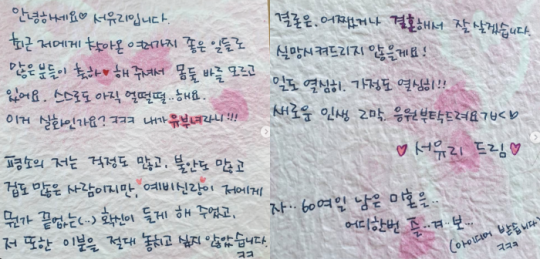 안녕하세요♡ 서유리입니다.
최근 저에게 찾아온 여러가지 좋은 일들로
많은분들이 축하♥해 주셔서 몸둘 바를 모르고
있어요. 스스로도 아직 얼떨떨..해요.
이거 실화인가요? ㅋㅋㅋ 내가 유부녀라니!!!
평소의 저는 걱정도 많고, 불안도 많고
겁도 많은 사람이지만, 예비신랑이 저에게
뭔가 끝없는(..) 확신이 들게 해 주었고,
저 또한 이분을 절대 놓치고 싶지 않았습니다.
ㅋㅋ
결론은, 어쨌거나 결혼해서 잘 살겠습니다.
실망시켜드리지 않을게요!
일도 열심히. 가정도 열심히!!
새로운 인생 2막. 응원부탁드려요?ㅂ<♡
♥ 서유리 드림♥
자.. 60여일 남은 미혼은..
어디한번 즐..겨..보..
(아이디어 받습니다)
ㅋㅋㅋ